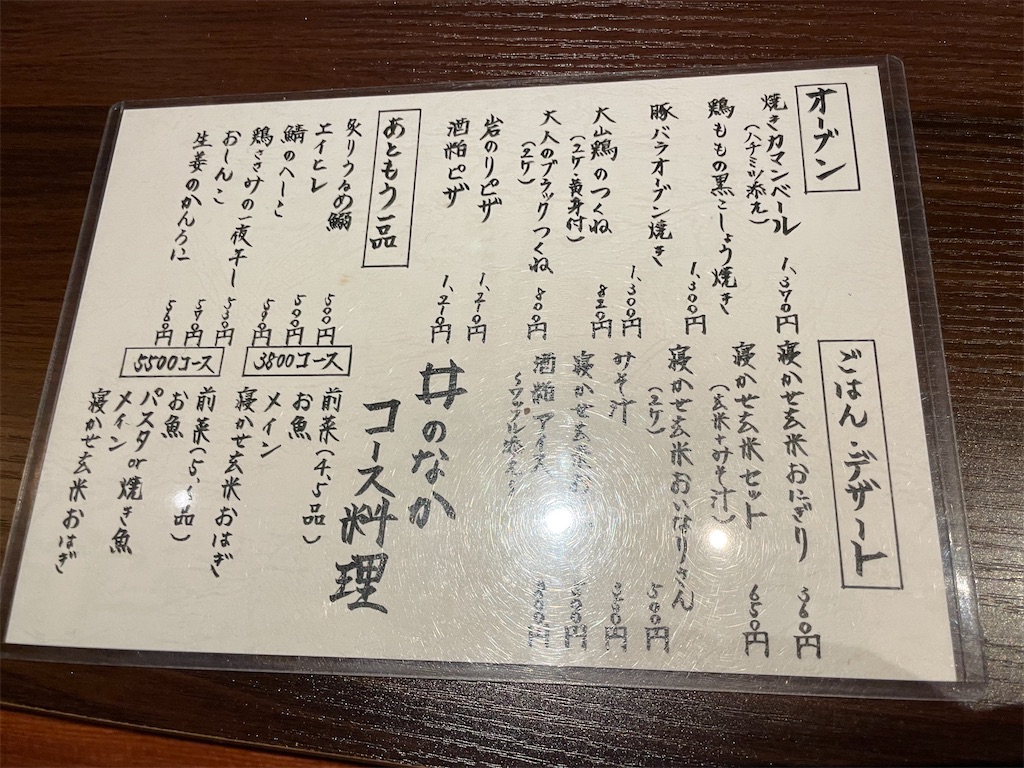 オーブン
焼きカマンベール
(ハチミツ添え)
1,370円
鶏ももの黒こしょう焼き
1,300円
豚バラオーブン焼き
1,300円
大山鶏のつくね
(2ケ・黄身付)
820円
大人のブラックつくね
(2ケ)
800円
岩のりピザ
1,210円
酒粕ピザ
1,210円
あともう一品
炙りうるめ鰯
500円
エイヒレ
500円
鯖のへしこ
590円
鶏ささみの一夜干し
530円
おしんこ
570円
生姜のかんろに
560円
ごはん・デザート
寝かせ玄米おにぎり
360円
寝かせ玄米セット
(玄米+みそ汁)
650円
寝かせ玄米おいなりさん
(2ケ)
500円
みそ汁
円
寝かせ玄米お
円
酒粕アイス
円
井のなか
コース料理
3800コース
前菜(4,5品)
お魚
メイン
寝かせ玄米おはぎ
5500コース
前菜(5,6品)
お魚
パスタor焼き魚
メイン
寝かせ玄米おはぎ